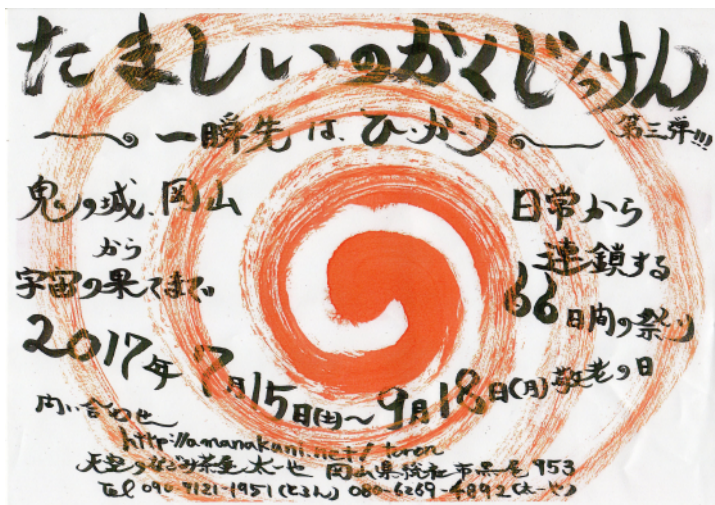 たましいのかくじっけん
一瞬先は、ひ・か・り
第三弾!!!
鬼の城、岡山
から
宇宙の果てまで
日常から
連鎖する
66日間の祭り
2017年7月15日(土)〜9月18日(月)敬老の日
問い合わせ
http://amanakuni.net/toren
天空のなごみ茶屋 太一也 岡山県総社市黒尾953
Tel 090-9121-1951(とるん) 080-6269-4892(太一や)